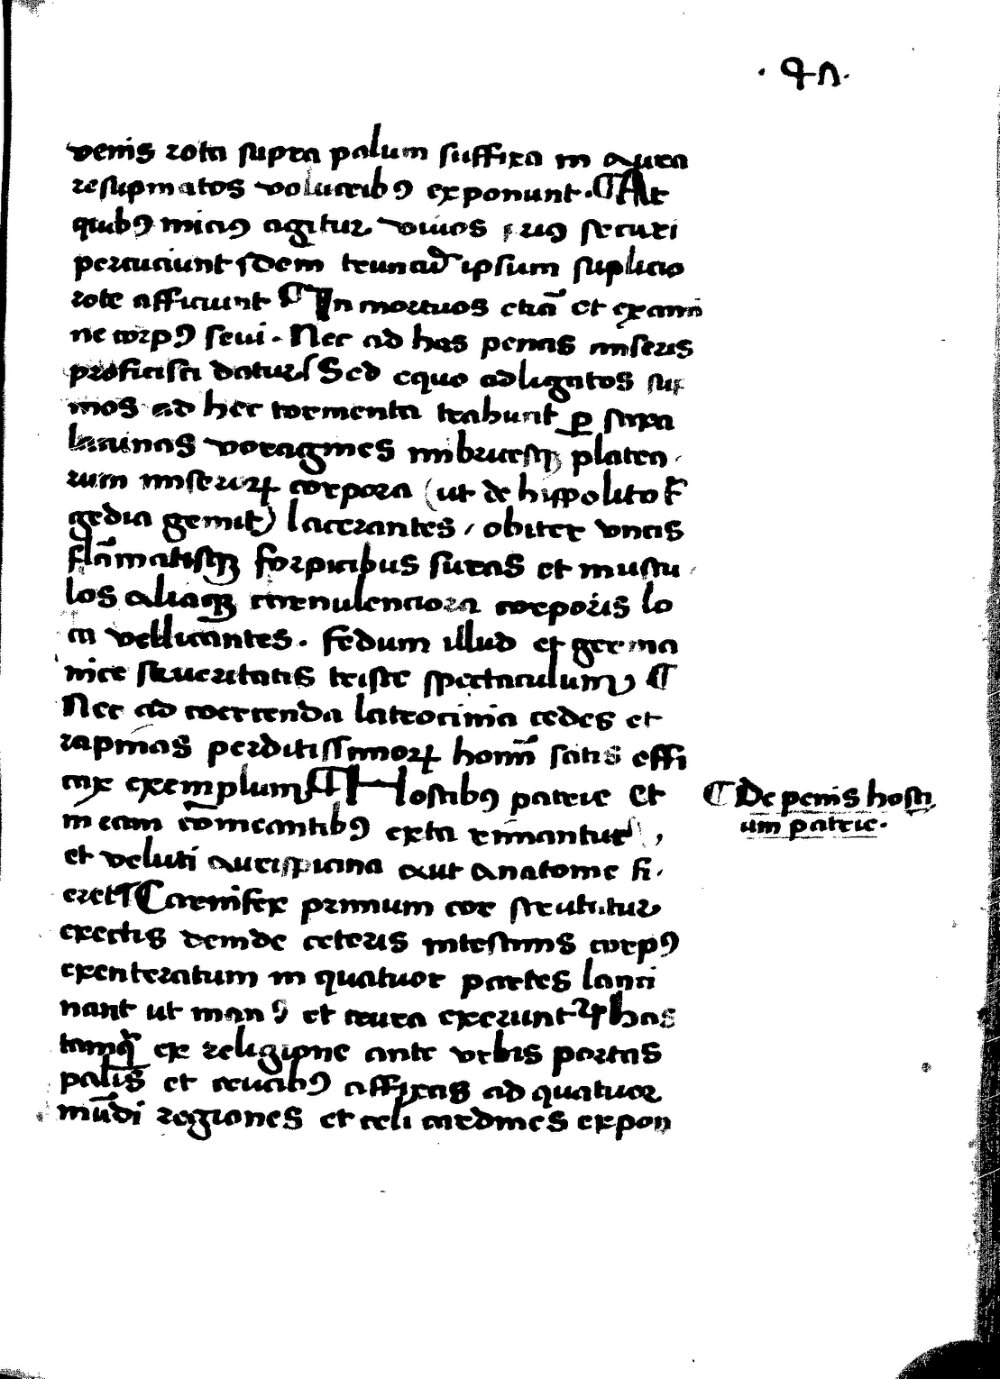 · 91 ·
venis rota supra palum suffixa in aura
resupinatos volucribꝰ exponunt · ¶ At
quibꝰ miciꝰ agitur viuos priꝰ securi
percuciunt Idem truncatī ipsum suplicio
rote afficiunt ¶ In mortuos eciā et exami
ne corpꝰ seui · Nec ad has penas miseris
proficisci datur Sed equo adligatos su
mos ad hec tormenta trahunt ꝑ saxa
lacunas voragines imbricesqꝫ platea
rum miseroꝝ corpora (ut de hippolito
gedia gemit) lacerantes / obiter vncis
flāmatisqꝫ forpicibus suras et muscu
los aliaqꝫ carnulenciora corporis lo
ca vellicantes · fedum illud et germa
nice seueritatis triste spectaculum ¶
Nec ad coercenda latrocinia cedes et
rapinas perditissimoꝝ homīn satis effi
cax exemplum ¶ Hostibꝰ patrie Et
in eam cōmeantibꝰ exta rimantur ,
et veluti auruspicina aut anatome fi ·
eret ¶ Carnifex primum cor scrutatur
exectis deinde ceteris intestinis corpꝰ
exenteratum in quatuor partes lanci
nant ut manꝰ et crura exerunt has
tamqꝫ̄ ex religione ante vrbis portas
palis et crucibꝰ affixas ad quatuor
mūdi regiones et celi cardines expon
¶ De penis hosti
um patrie ·